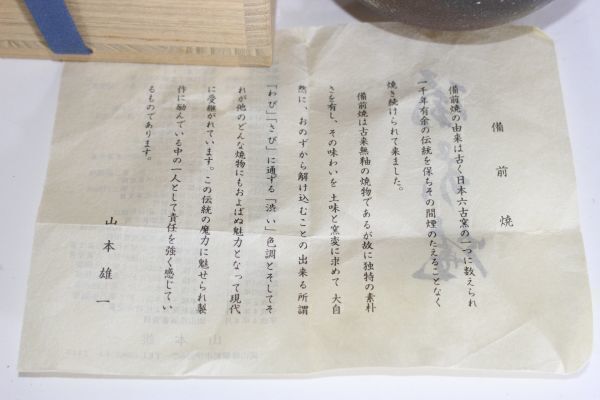 備前焼
備前焼の由来は古く日本六古窯の一つに数えられ
一千年有余の伝統を保ちその間煙のたえることなく
焼き続けられて来ました。
備前焼は古来無釉の焼物であるが故に独特の素朴
さを有し、その味わいを土味と窯変に求めて大自
然に、おのずから解け込むことの出来る所謂
「わび」「さび」に通ずる「渋い」色調とそしてそ
れが他のどんな焼物にもおよばぬ魅力となって現代
に受継がれています。この伝統の魔力に魅せられ製
作に励んでいる中の一人として責任を強く感じてい
るものであります。
山本雄一